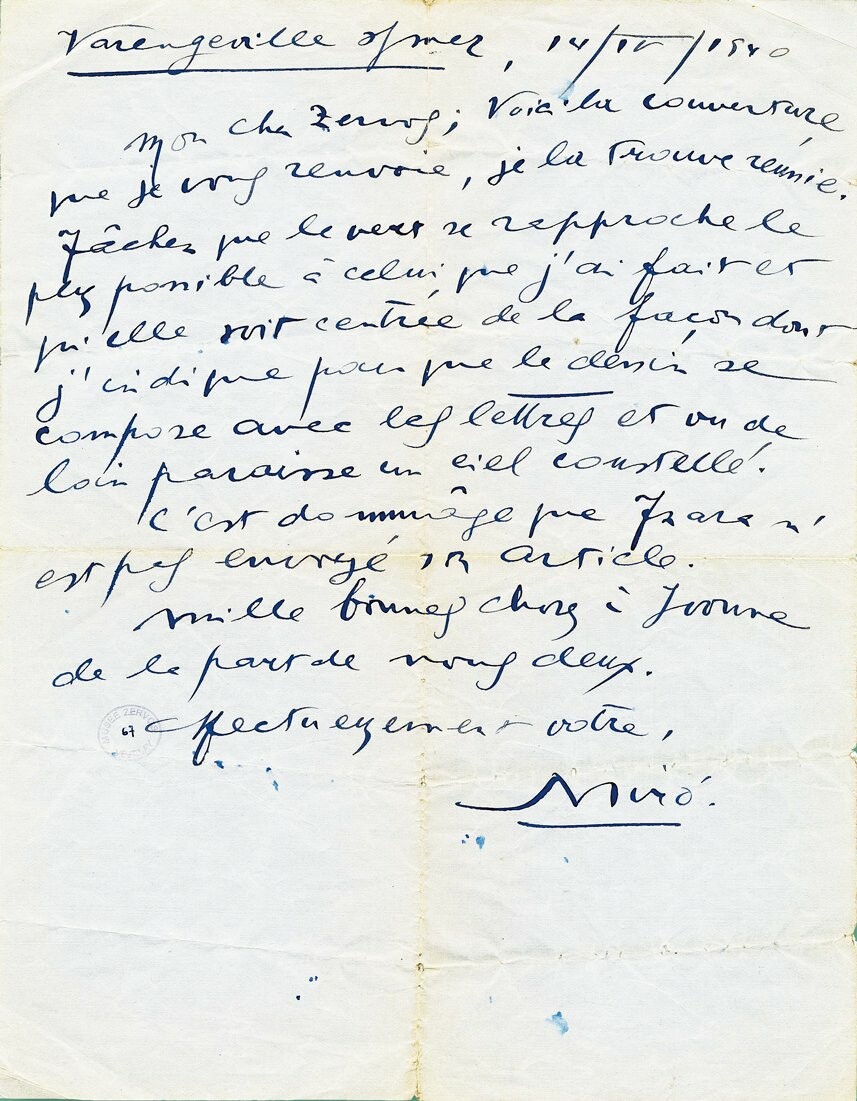 Varengeville s/mer, 14/IV/1940
Mon cher Zervos; Voici la couverture
que je vous renvoie, je la trouve réussie.
Tâchez que le vert se rapproche le
plus possible à celui que j'ai fait et
qu'elle soit centrée de la façon dont
j'indique pour que le dessin se
compose avec les lettres et vu de
loin paraisse un ciel constellé.
C'est dommâge que Tzara n'
est pas envoyé son article.
Mille bonnes choses à Yvonne
de la part de nous deux.
MUSÉE ZERVOS
67
Affectueusement votre,
Miró.